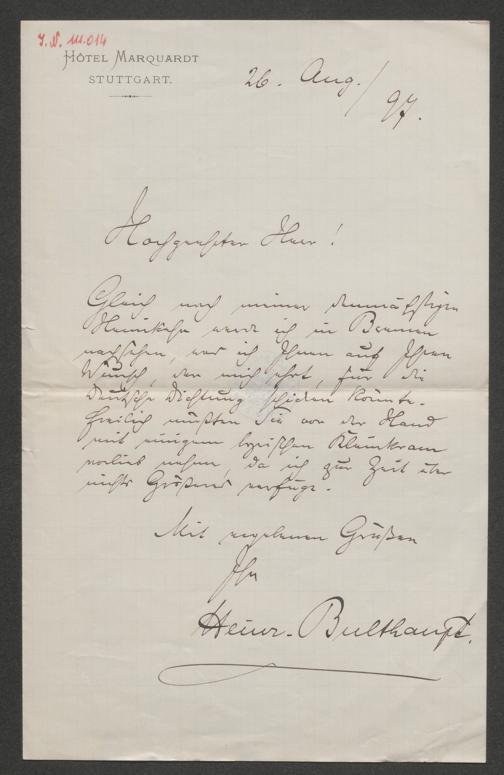 J. N. 111.014
HÔTEL MARQUARDT
STUTTGART.
26. Aug. / 97.
Hochgeehrter Herr!
Gleich nach meiner demnächstigen
Heimkehr werde ich in Bremen
nachsehen, was ich Ihnen auf Ihren
Wunsch, der mich ehrt, für die
Deutsche Dichtung schicken könnte.
Freilich müßten Sie vor der Hand
mit einigem lyrischen Kleinkram
vorlieb nehmen, da ich zur Zeit über
nichts Größeres verfüge.
Mit ergebenen Grüßen
Ihr
Heinr. Bulthaupt.